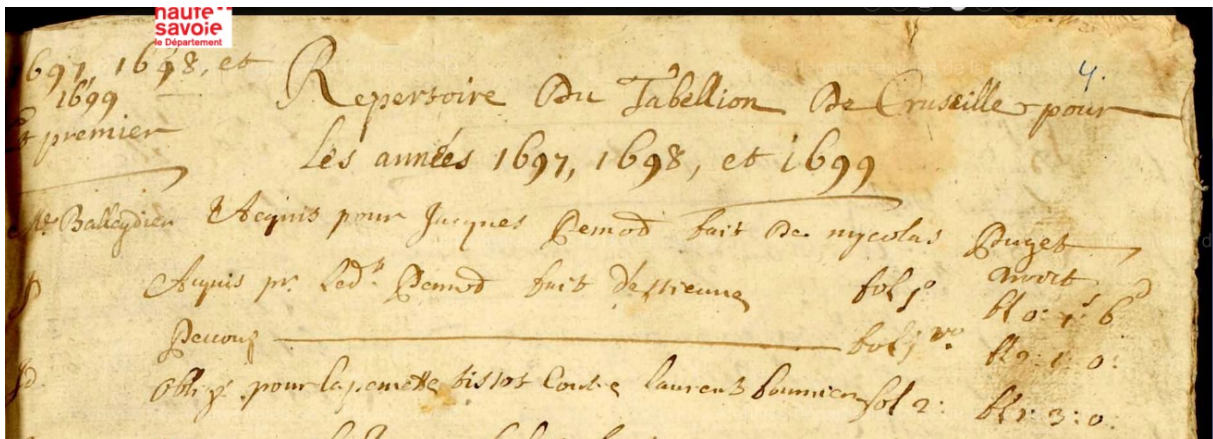 haute
savoie
le Département
4.
1697, 1698, et
1699
Et premier
Repertoire Du Tabellion De Cruseille pour
Les années 1697, 1698, et 1699
Me Balleydier Acquis pour Jacques Pemod fait De nycolas Puget
mort
Acquis pr. Led.t Pemod fait d'estienne fol 1o bl 0: 1s 6d
fol 1 vo. bl 0: 1: 0:
Oblig pour la pernette tissot Contre laurens fol 2: 3: 0: